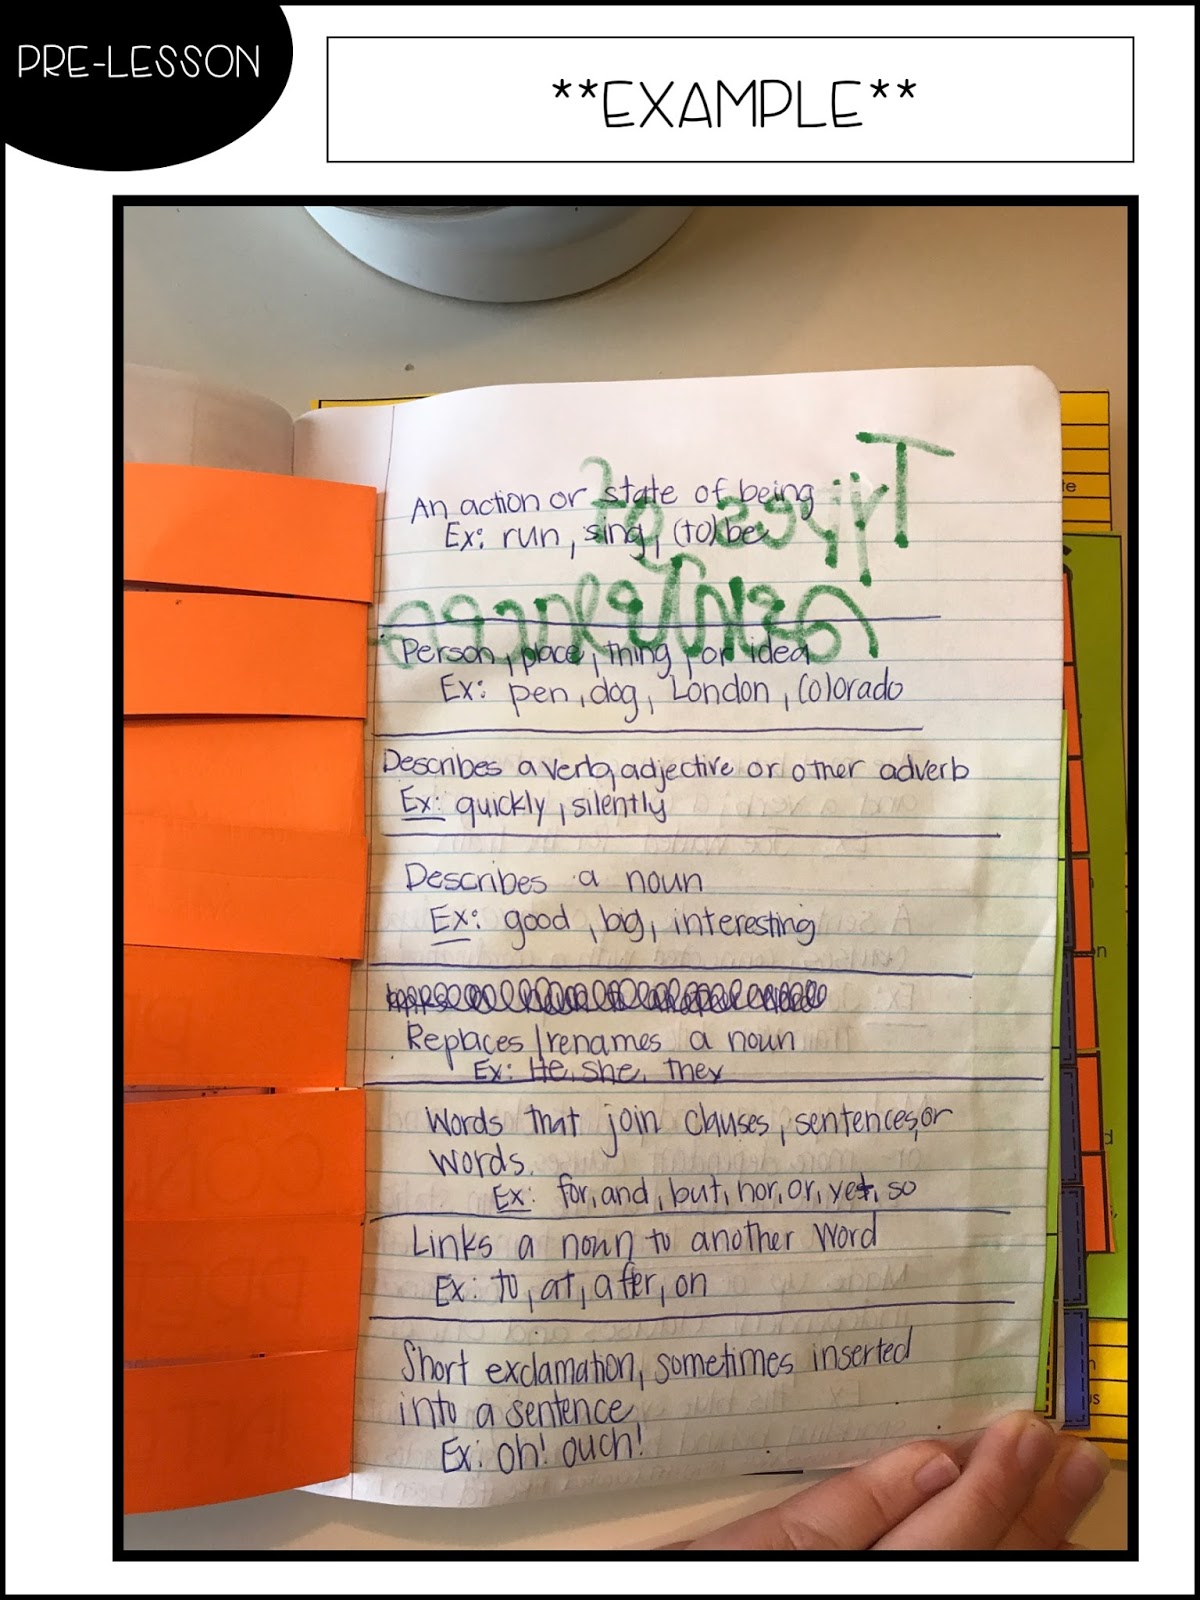 PRE-LESSON
**EXAMPLE**
Types of
Sentences
An action or state of being
Ex: run, sing, (to) be
Person, place, thing, or idea
Ex: pen, dog, London, Colorado
Describes a verb, adjective or other adverb
Ex: quickly, silently
Describes a noun
Ex: good, big, interesting
Replaces/renames a noun
Ex: He, she, they
Words that join clauses, sentences, or
words.
Ex: for, and, but, nor, or, yet, so
Links a noun to another word
Ex: to, at, after, on
Short exclamation, sometimes inserted
into a sentence
Ex: oh! ouch!